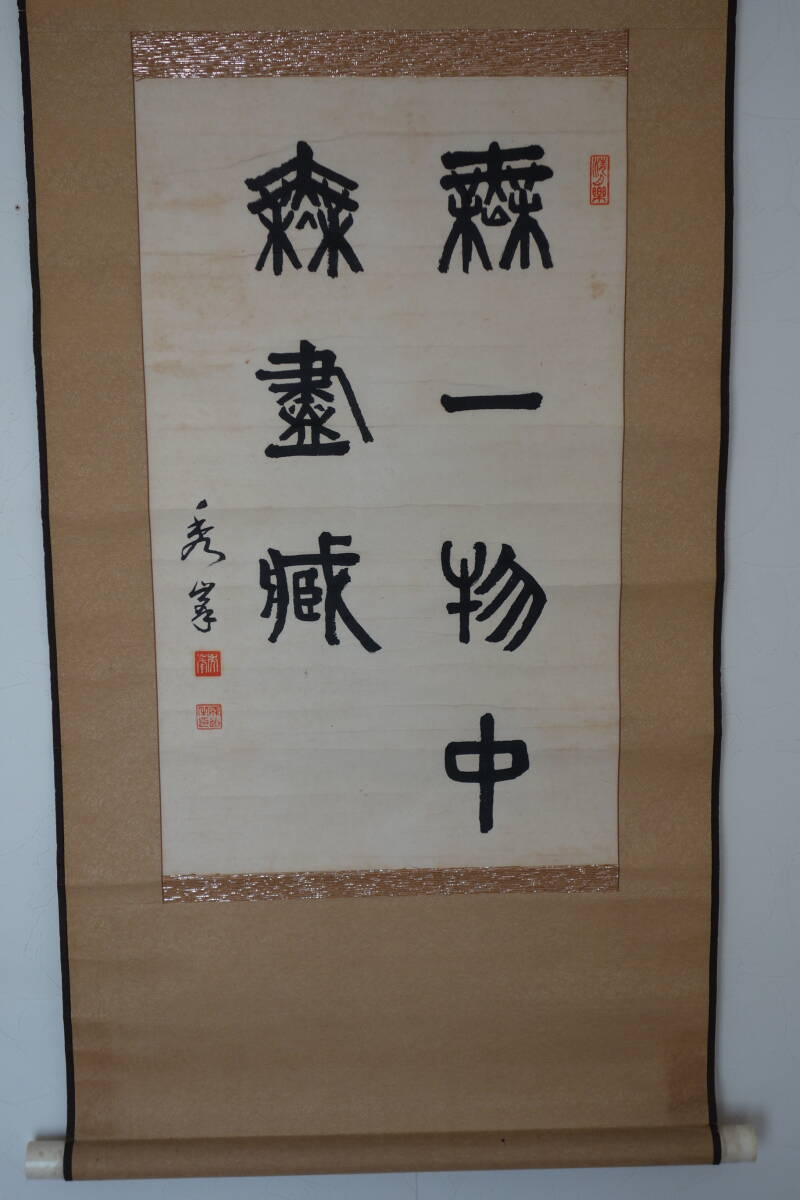 無一物中
無盡藏
秀峯